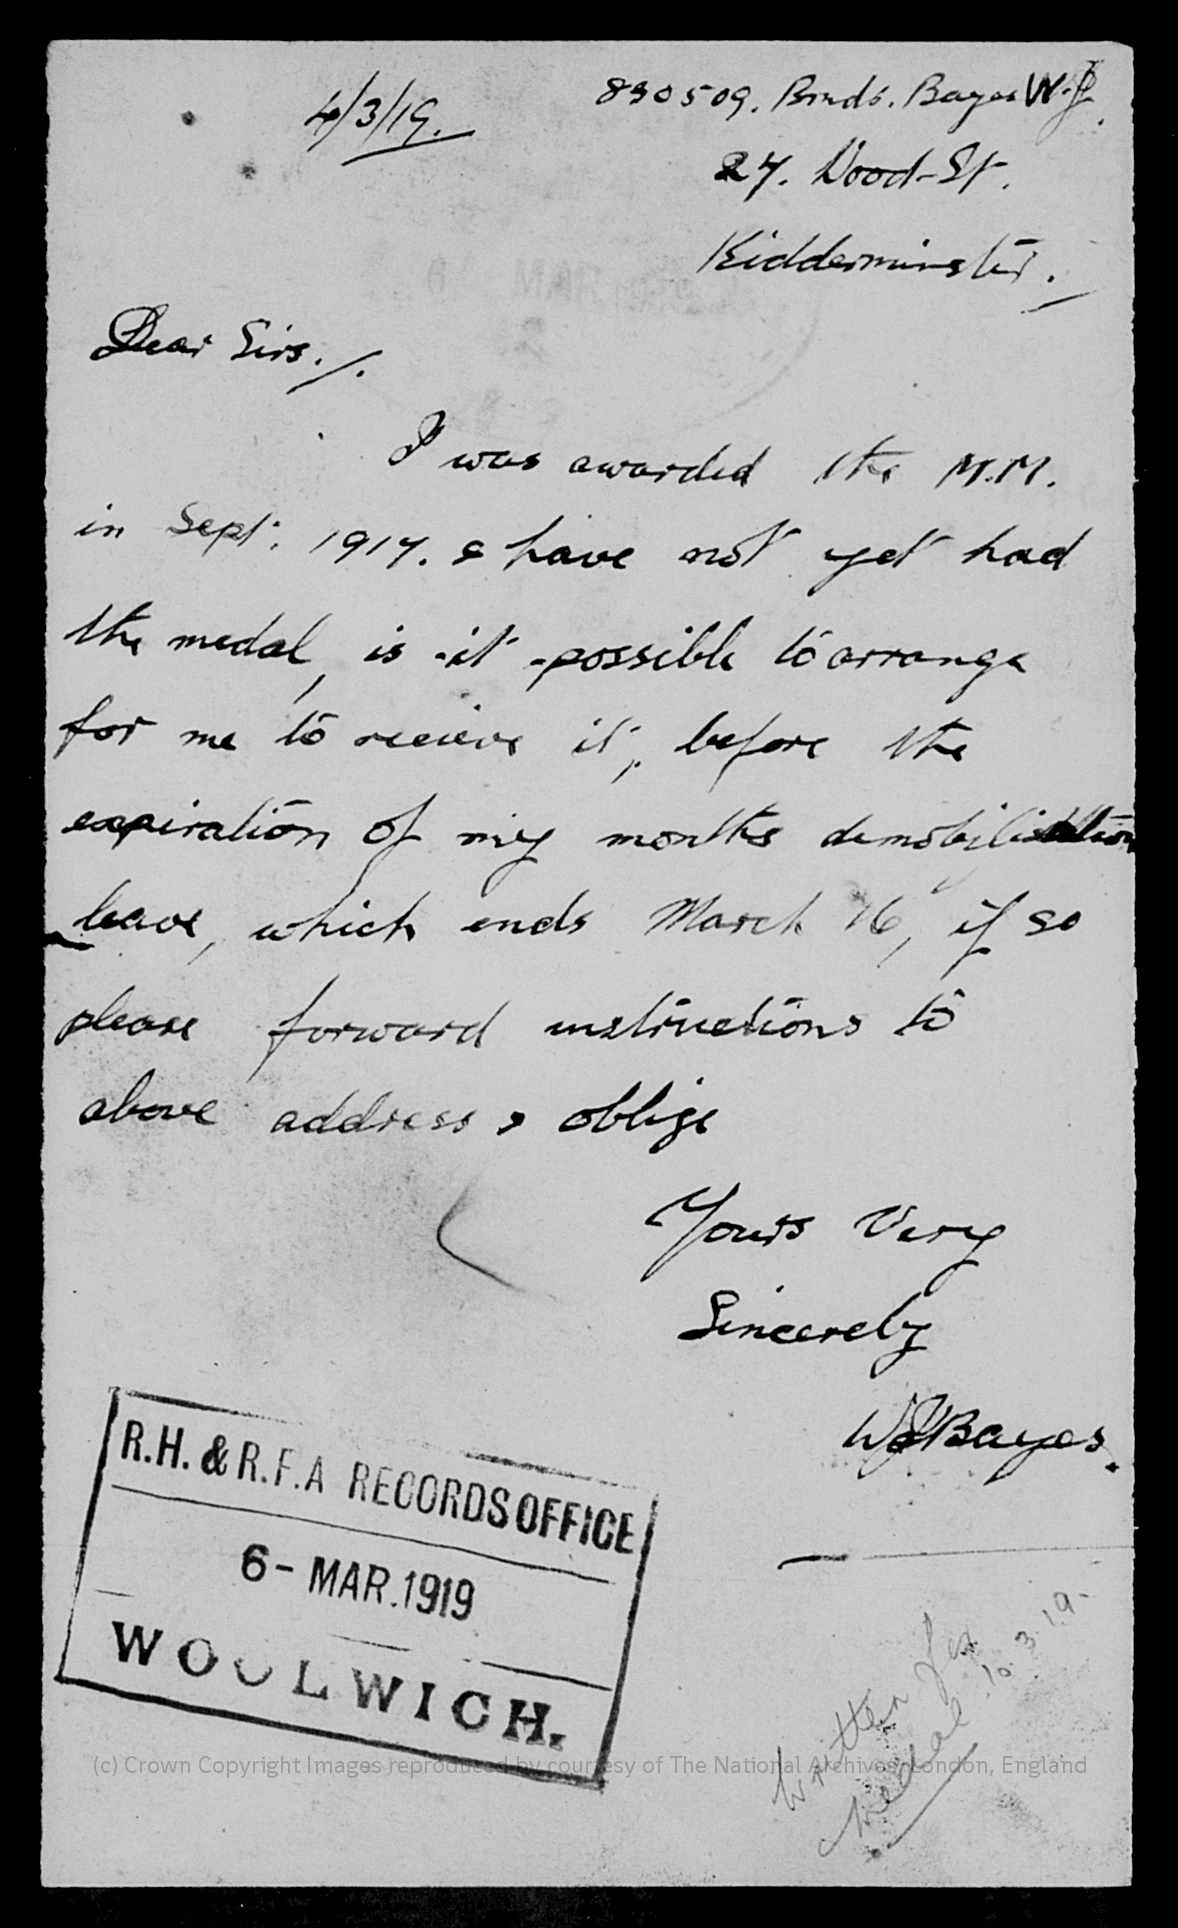 4/3/19.
830509. Bmdr. Bayes W.J.
27. Wood-St.
Kidderminster.
Dear Sirs./.
I was awarded the M.M.
in Sept. 1917. & have not yet had
the medal, is it possible to arrange
for me to recieve it, before the
expiration of my months demobilisation
leave, which ends March 16, if so
please forward instructions to
above address & oblige
Yours Very
Sincerely
WJBayes.
R.H. & R.F.A RECORDS OFFICE
6- MAR.1919
WOOLWICH.
Written for
Medal 10.3.19-
(c) Crown Copyright Images reproduced by courtesy of The National Archives, London, England